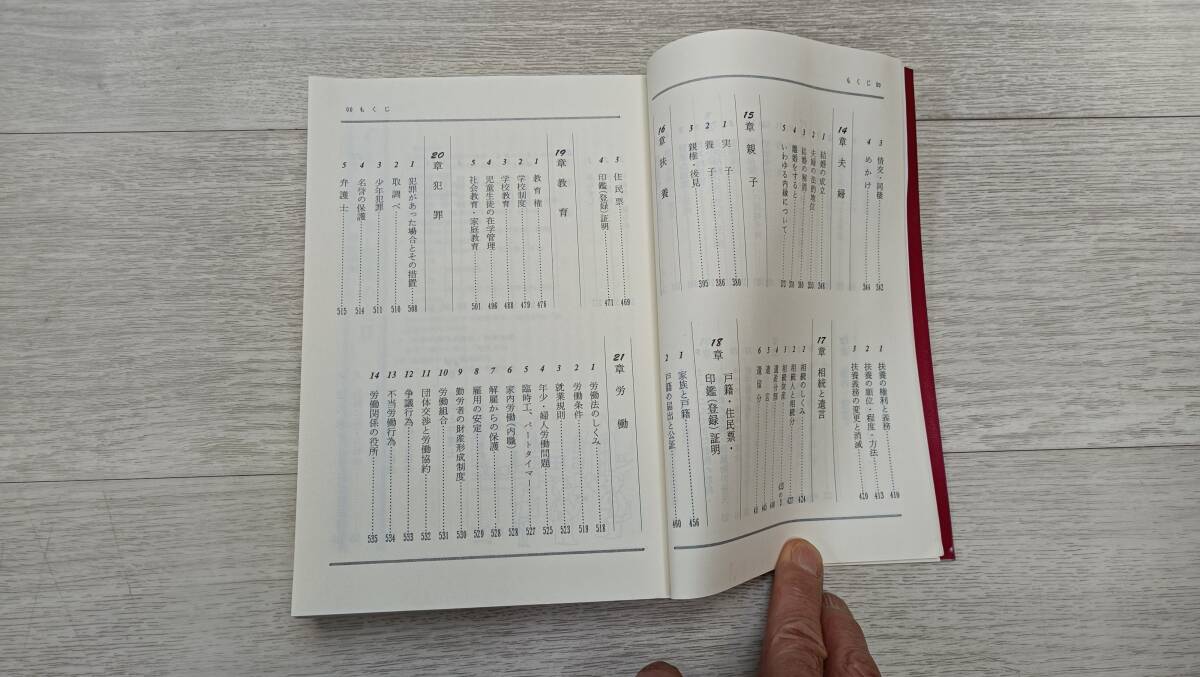 もくじ
3 情交・同棲 342
4 めかけ 344
14章 夫婦
1 結婚の成立 348
2 夫婦の法的地位
3 結婚の解消
4 離婚をすると
5 いわゆる内縁について 372
15章 親子
1 実子 380
2 養子 386
3 親権・後見 395
16章 扶養
1 扶養の権利と義務 410
2 扶養の順位・程度・方法 413
3 扶養義務の変更と消滅 420
17章 相続と遺言
1 相続のしくみ 424
2 相続人と相続分 427
3 相続財産
4 遺産分割
5 遺言
6 遺留分
18章 戸籍・住民票・
印鑑(登録)証明
1 家族と戸籍 456
2 戸籍の届出と公証 460
もくじ
3 住民票 469
4 印鑑(登録)証明 471
19章 教育
1 教育権 476
2 学校制度 479
3 学校教育 488
4 児童生徒の在学管理 496
5 社会教育・家庭教育 501
20章 犯罪
1 犯罪があった場合とその措置 508
2 取調べ 510
3 少年犯罪 511
4 名誉の保護 514
5 弁護士 515
21章 労働
1 労働法のしくみ 518
2 労働条件 519
3 就業規則 523
4 年少・婦人労働問題 525
5 臨時工、パートタイマー 527
6 家内労働(内職) 528
7 解雇からの保護 528
8 雇用の安定 529
9 勤労者の財産形成制度 530
10 労働組合 531
11 団体交渉と労働協約 532
12 争議行為 533
13 不当労働行為 534
14 労働関係の役所 535